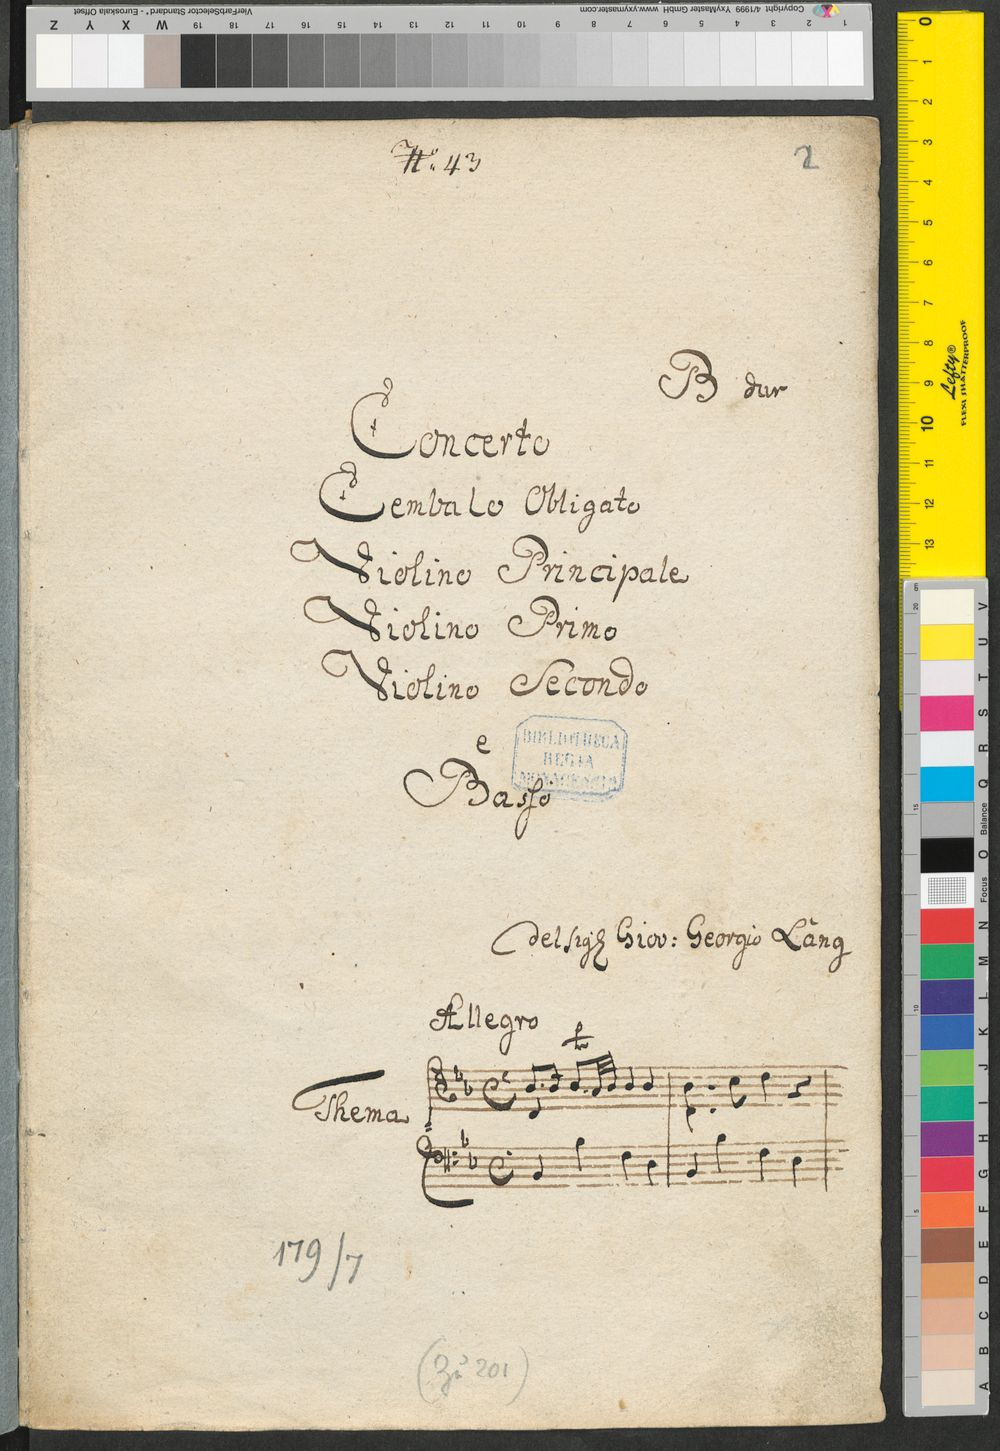 No. 43
2
B dur
Concerto
Cembalo Obligato
Violino Principale
Violino Primo
Violino Secondo
e
Basso
BIBLIOTHECA
REGIA
MONACENSIS
del Sigʳ Giov: Georgio Láng
Allegro
Thema
179/7
(Zu 201)
VierFarbSelector Standard* - Euroskala Offset
Copyright 4/1999 YxyMaster GmbH www.yxymaster.com
Z Y X W 19 18 17 16 15 14 13 12 11 10 9 8 7 6 5 4 3 2 1
0 1 2 3 4 5 6 7 8 9 10 11 12 13
Lefty®
FLEXI SHATTERPROOF
cm 20 15 10 5
V U T S R Q Balance O Focus N M L K J I H G F E D C B A